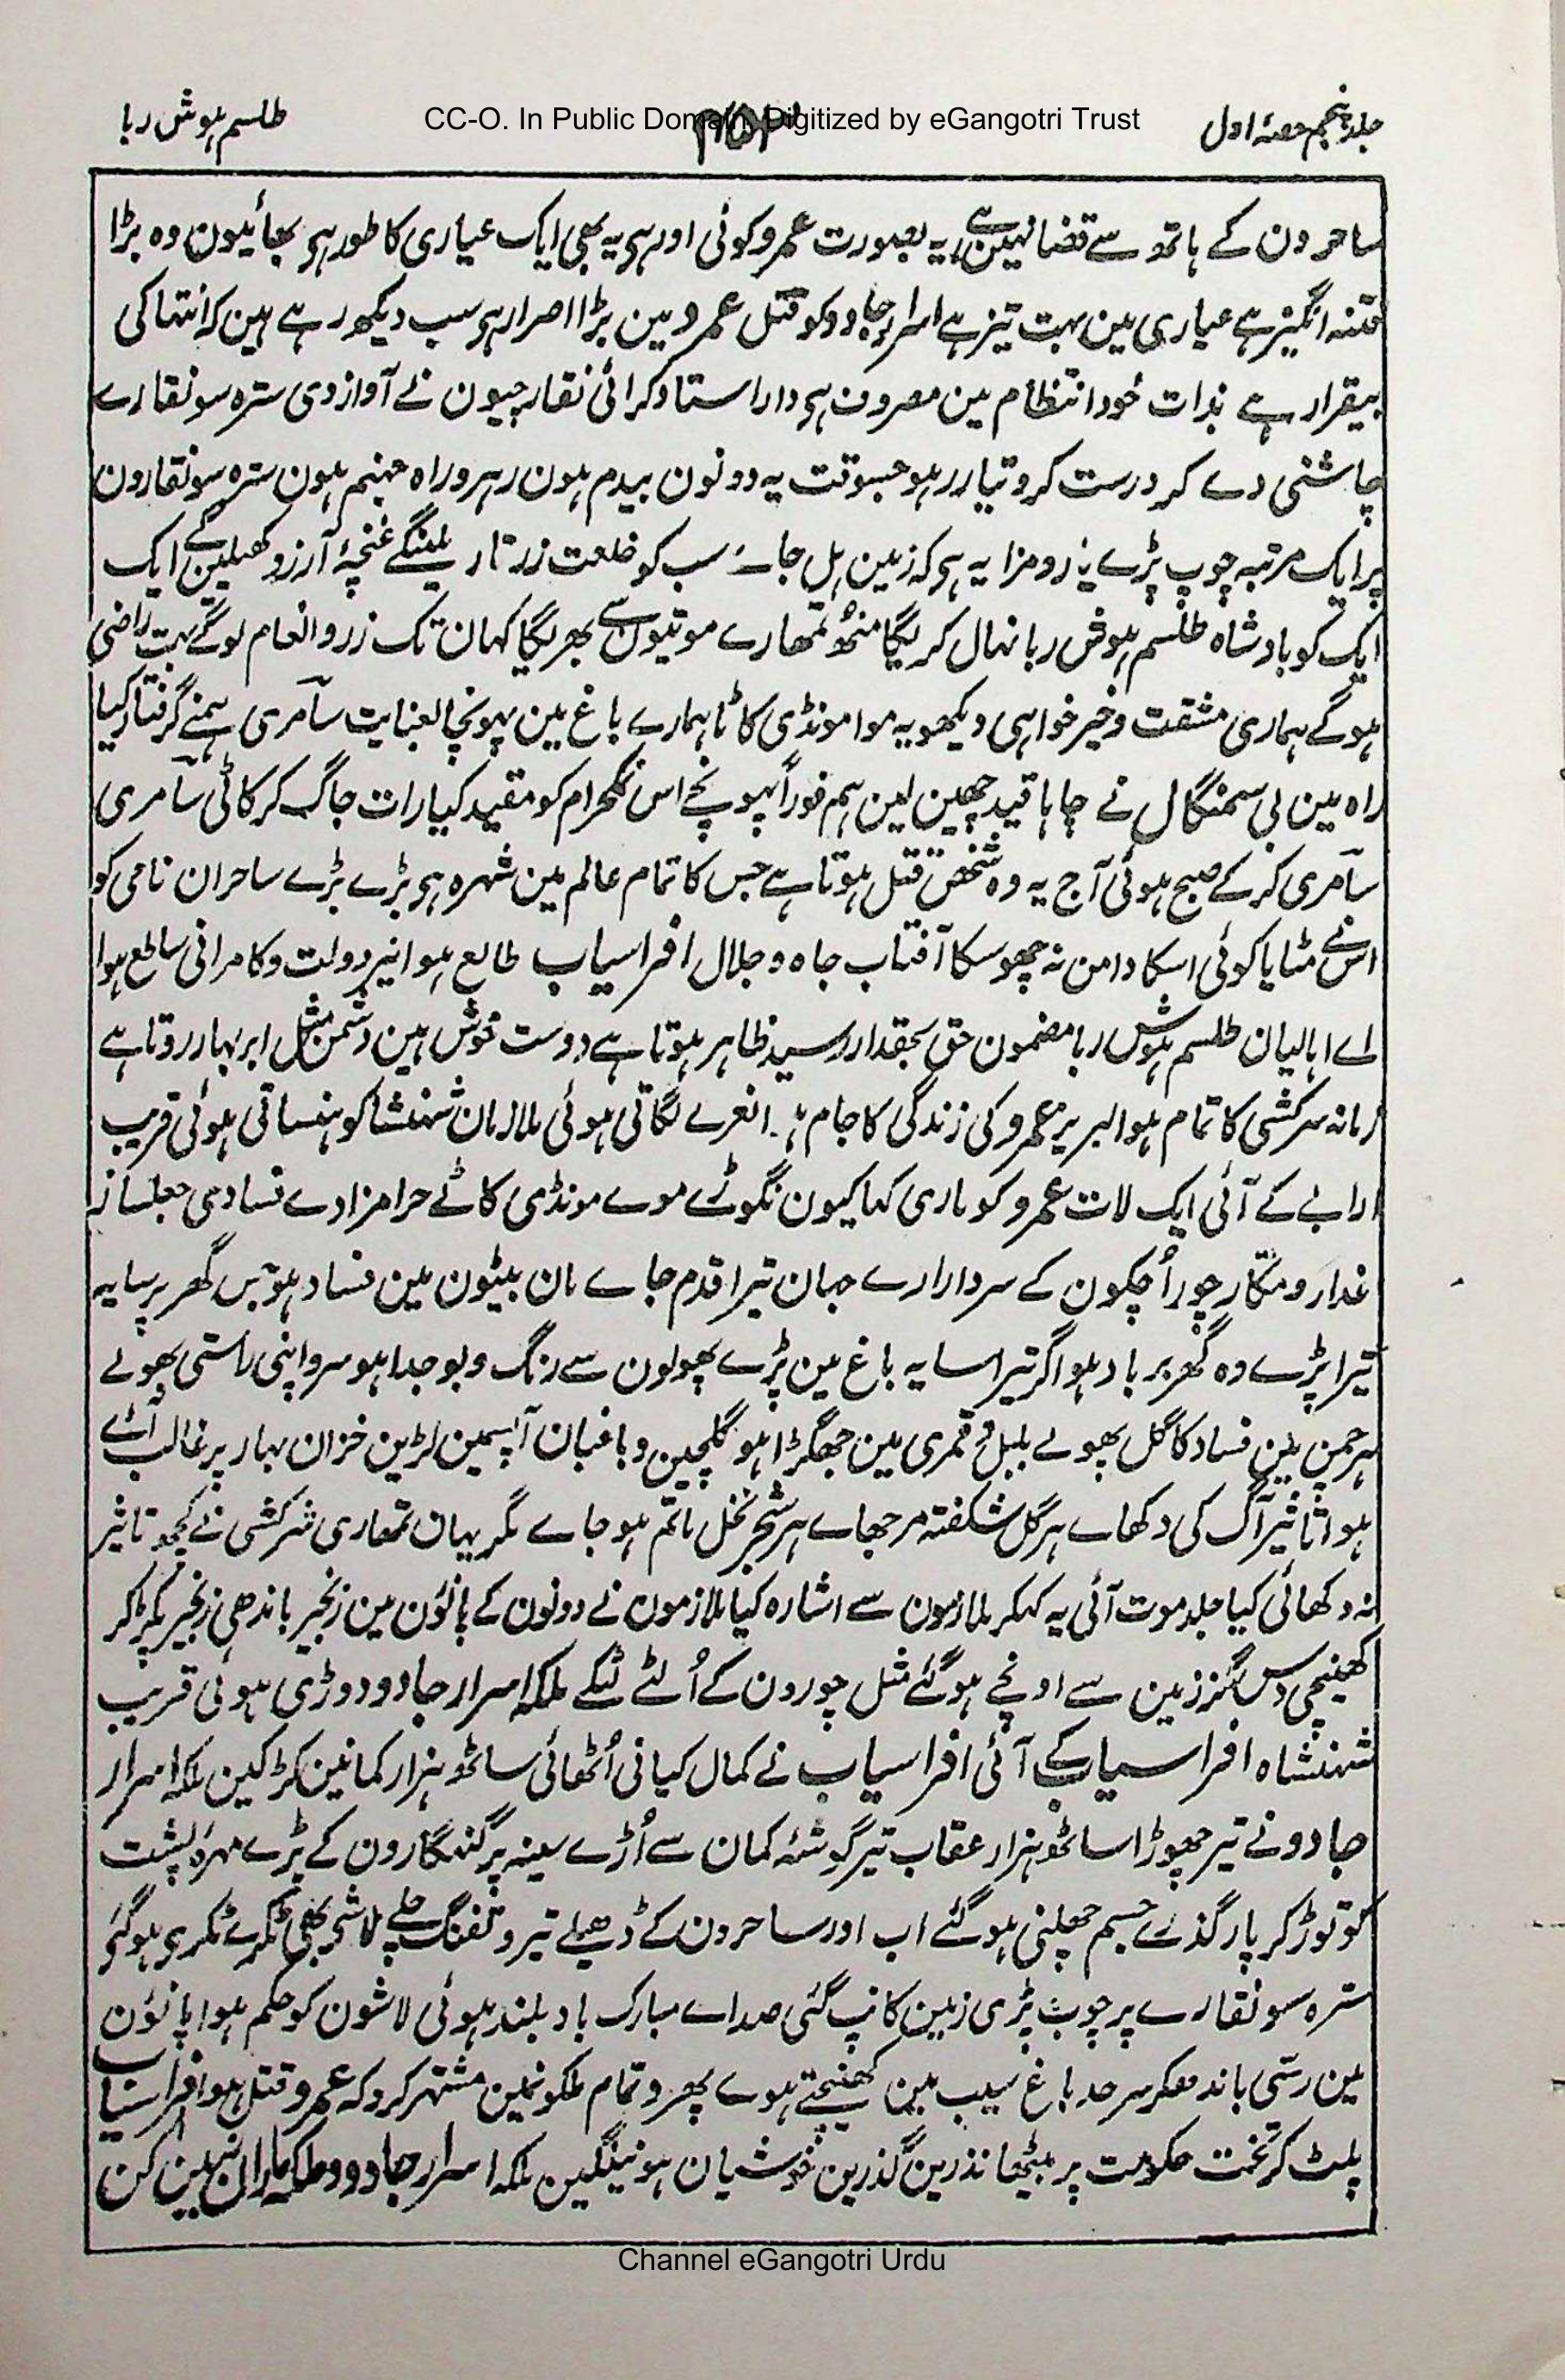 جلد پنجم حصۂ اول
CC-O. In Public Domain. Digitized by eGangotri Trust
طلسم ہوش ربا
ساحرون کے ہاتھ سے قضا نہیں ہے یہ بصورت عمرو کوئی اور ہی یہ بھی ایک عیاری کا طور ہی بھائیون وہ بڑا
فتنہ انگیز ہے عیاری مین بہت تیز ہے اسرار جادو کو قتل عمرو مین بڑا اصرار ہی سب دیکھ رہے ہین کہ انتہا کی
بیقرار ہے بذات خود انتظام مین مصروف ہی دار استاد کرائی نقارچیون نے آواز دی سترہ سو نقارے
چاشنی دے کر درست کرو تیار رہو جسوقت یہ دونون بیدم ہون رہرو راہ جہنم ہون سترہ سو نقارون
پر ایک مرتبہ چوب پڑے یارو مزا یہ ہی کہ زمین ہل جائے سب کو خلعت زرتار ملینگے غنچۂ آرزو کھلین گے ایک
ایک کو بادشاہ طلسم ہوش ربا نہال کریگا منھ تمھارے موتیون سے بھریگا کہان تک زر و انعام لوگے بہت راضی
ہوگے ہماری مشقت و خیر خواہی دیکھو یہ موا مونڈی کاٹا ہمارے باغ مین پہونچا بعنایت سآمری ہمنے گرفتار کیا
راہ مین بی سمنگال نے چاہا قید چھین لین ہم فوراً پہونچے اس نمکحرام کو مقید کیا رات جاگ کر کاٹی سآمری
سآمری کر کے صبح ہوئی آج یہ وہ شخص قتل ہوتا ہے جس کا تمام عالم مین شہرہ ہی بڑے بڑے ساحران نامی کو
اس نے مٹایا کوئی اسکا دامن نہ چھو سکا آفتاب جاہ و جلال افراسیاب طالع ہوا نیر دولت و کامرانی ساطع ہوا
اے اہالیان طلسم ہوش ربا مضمون حق بحقدار رسید ظاہر ہوتا ہے دوست خوش ہین دشمن مثل ابر بہار روتا ہے
زمانہ سرکشی کا تمام ہوا لبریز عمرو کی زندگی کا جام نعرے لگاتی ہوئی ملازمان شہنشا کو ہنساتی ہوئی قریب
ارابے کے آئی ایک لات عمرو کو ماری کہا کیون نگوڑے موے مونڈی کاٹے حرامزادے فسادی جعلساز
غدار و مکّار چور اُچکون کے سردار ارے جہان تیرا قدم جاے مان بیٹون مین فساد ہو جس گھر پر سایہ
تیرا پڑے وہ گھر برباد ہو اگر تیرا سایہ باغ مین پڑے پھولون سے رنگ و بو جدا ہو سرو اپنی راستی بھولے
ہر چمن مین فساد کا گل پھولے بلبل و قمری مین جھگڑا ہو گلچین و باغبان آپسمین لڑین خزان بہار پر غالب آئے
ہوا تاثیر آگ کی دکھاے ہر گل شگفتہ مرجھاے ہر شجر نخل ماتم ہو جاے مگر یہان تمھاری سرکشی نے کچھ تاثیر
نہ دکھائی کیا جلد موت آئی یہ کہکر ملازمون سے اشارہ کیا ملازمون نے دونون کے پانوُن مین زنجیر باندھی زنجیر پکڑ کر
کھینچی دس گز زمین سے اونچے ہوگئے مثل چورون کے اُلٹے لٹکے ملکہ اسرار جادو دوڑی ہوئی قریب
شہنشاہ افراسیاب کے آئی افراسیاب نے کمال کیانی اُٹھائی ساٹھ ہزار کمانین کڑکین ملکہ اسرار
جادو نے تیر چھوڑا ساٹھ ہزار عقاب تیر گوشۂ کمان سے اُڑے سینہ پر گنہگارون کے پڑے مہرۂ پشت
کو توڑ کر پار گذرے جسم چھلنی ہوگئے اب اور ساحرون کے ڈھیلے تیر و تفنگ چلے لاش بھی ٹکڑے ٹکڑی ہوگئی
سترہ سو نقارے پر چوب پڑی زمین کانپ گئی صداے مبارک باد بلند ہوئی لاشون کو حکم ہوا پانوُن
مین رسّی باندھکر سرحد باغ سیب مین کھینچتے ہوے پھرو تمام ملکونمین مشتہر کردو کہ عمرو قتل ہوا افراسیاب
پلٹ کر تخت حکومت پر بیٹھا نذرین گذرین خوشیان ہونیلگین ملکہ اسرار جادو
Channel eGangotri Urdu